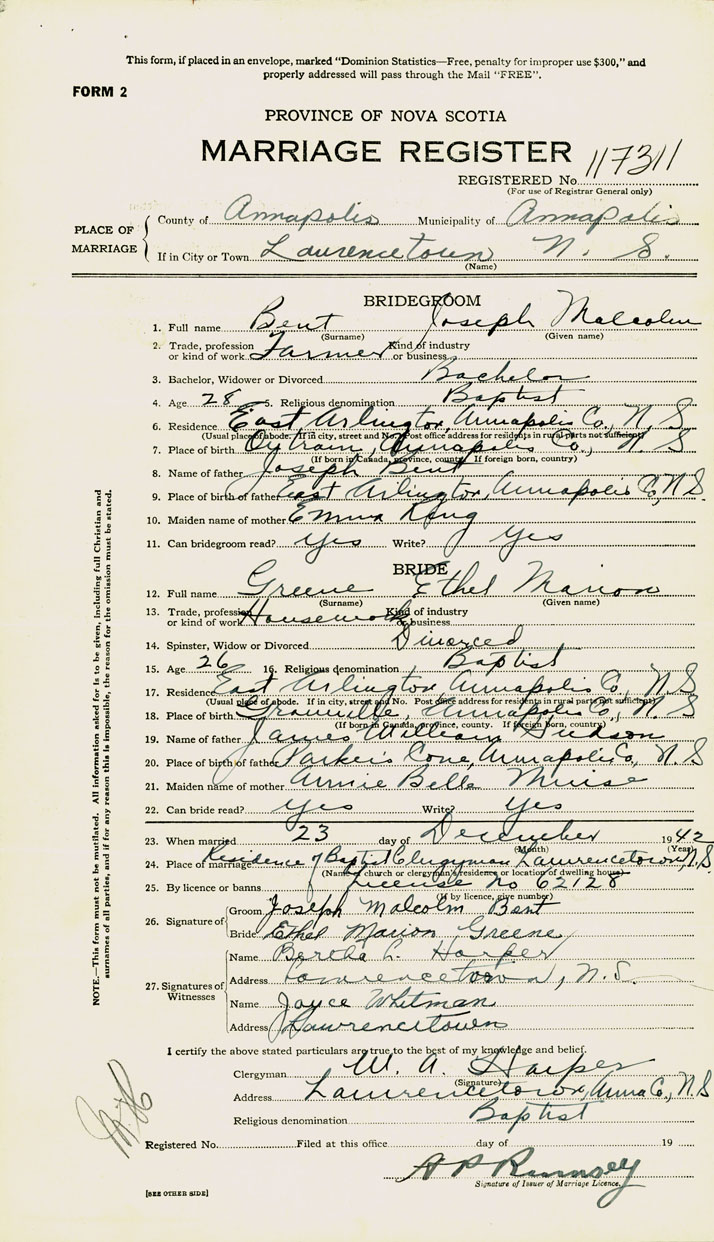 This form, if placed in an envelope, marked "Dominion Statistics—Free, penalty for improper use $300," and
properly addressed will pass through the Mail "FREE".
FORM 2
PROVINCE OF NOVA SCOTIA
MARRIAGE REGISTER
REGISTERED No. 117311
(For use of Registrar General only)
PLACE OF MARRIAGE
County of Annapolis Municipality of Annapolis
If in City or Town Lawrencetown N. S.
(Name)
BRIDEGROOM
1. Full name Bent Joseph Malcolm
(Surname) (Given name)
2. Trade, profession or kind of work Farmer Kind of industry or business
3. Bachelor, Widower or Divorced Bachelor
4. Age 28 5. Religious denomination Baptist
6. Residence East Arlington, Annapolis Co., N. S.
(Usual place of abode. If in city, street and No. Post office address for residents in rural parts not sufficient)
7. Place of birth Outram, Annapolis Co., N. S
(If born in Canada, province, county. If foreign born, country)
8. Name of father Joseph Bent
9. Place of birth of father East Arlington, Annapolis Co, N. S.
10. Maiden name of mother Emma King
11. Can bridegroom read? Yes Write? Yes
BRIDE
12. Full name Greene Ethel Marion
(Surname) (Given name)
13. Trade, profession or kind of work Housework Kind of industry or business
14. Spinster, Widow or Divorced Divorced
15. Age 26 16. Religious denomination Baptist
17. Residence East Arlington Annapolis Co., N. S
(Usual place of abode. If in city, street and No. Post office address for residents in rural parts not sufficient)
18. Place of birth Granville, Annapolis Co., N. S
(If born in Canada, province, county. If foreign born, country)
19. Name of father James William
20. Place of birth of father Parker's Cove, Annapolis Co, N. S
21. Maiden name of mother Annie Belle Muise
22. Can bride read? Yes Write? Yes
23. When married 23 day of December 1942
(Month) (Year)
24. Place of marriage Residence of Baptist Clergyman Lawrencetown, N. S.
(Name of church or clergyman's residence or location of dwelling house)
25. By licence or banns License No 62128
(If by licence, give number)
26. Signature of
Groom Joseph Malcolm Bent
Bride Ethel Marion Greene
27. Signatures of Witnesses
Name Bertha L. Harper
Address Lawrencetown, N. S.
Name Joyce Whitman
Address Lawrencetown
I certify the above stated particulars are true to the best of my knowledge and belief.
Clergyman W. A. Harper
(Signature)
Address Lawrencetown, Anna Co., N. S
Religious denomination Baptist
Registered No. Filed at this office day of 19
Signature of Issuer of Marriage Licence.
[SEE OTHER SIDE]
NOTE.—This form must not be mutilated. All information asked for is to be given, including full Christian and
surnames of all parties, and if for any reason this is impossible, the reason for the omission must be stated.